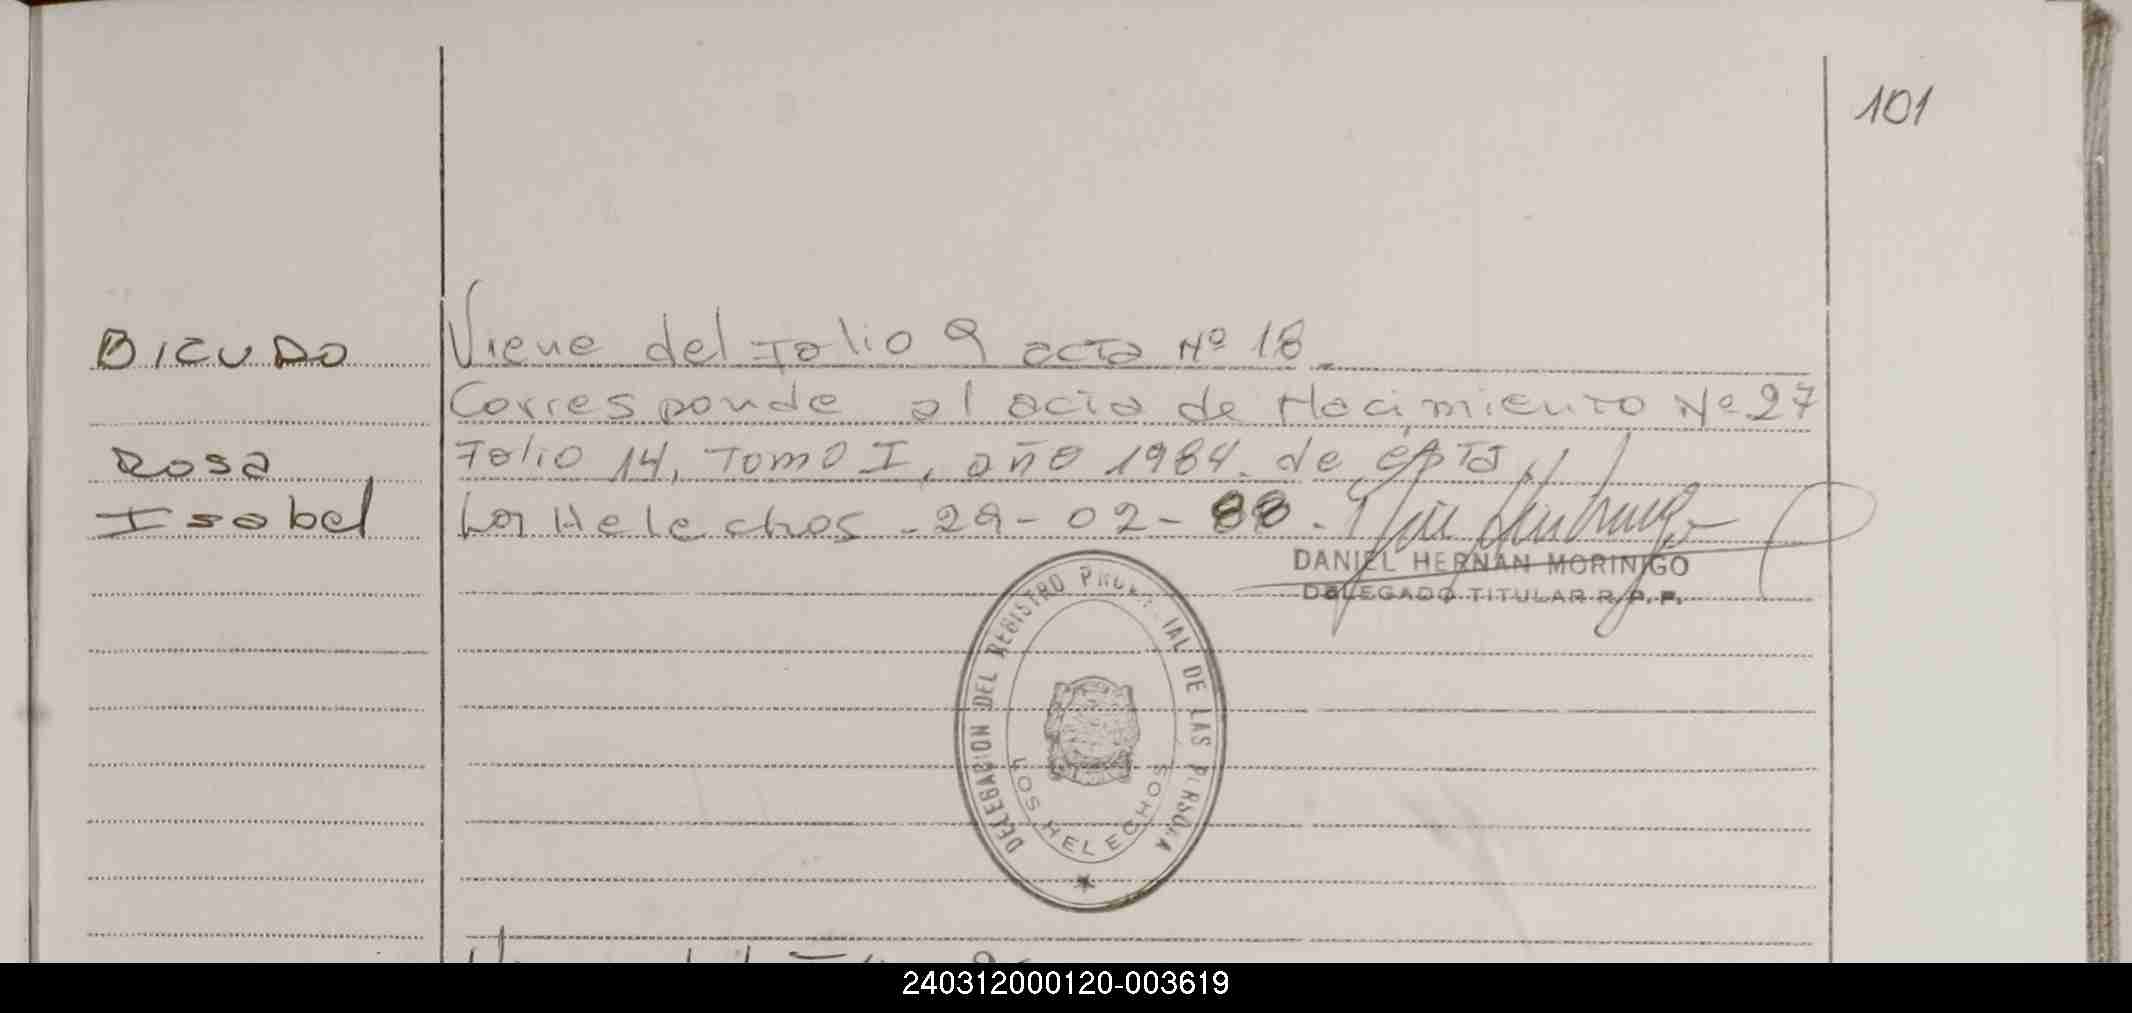 101
BICUDO Viene del Folio 9 acta Nº 18.
Corresponde al acta de Nacimiento Nº 27
Rosa Folio 14, Tomo I, año 1984. de ésta
Isabel Los Helechos - 29 - 02 - 88.
DANIEL HERNAN MORINIGO
DELEGADO TITULAR R. P. P.
DELEGACION DEL REGISTRO PROVINCIAL DE LAS PERSONA
LOS HELECHOS
240312000120-003619